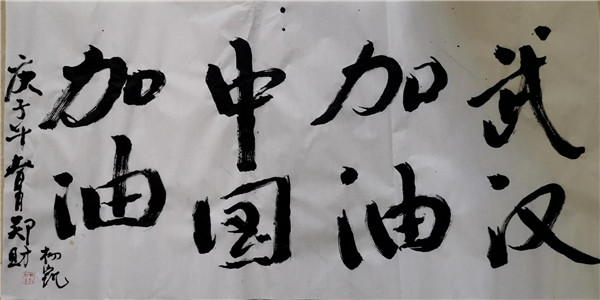 武汉
加油
中国
加油
庚子年春月郑财